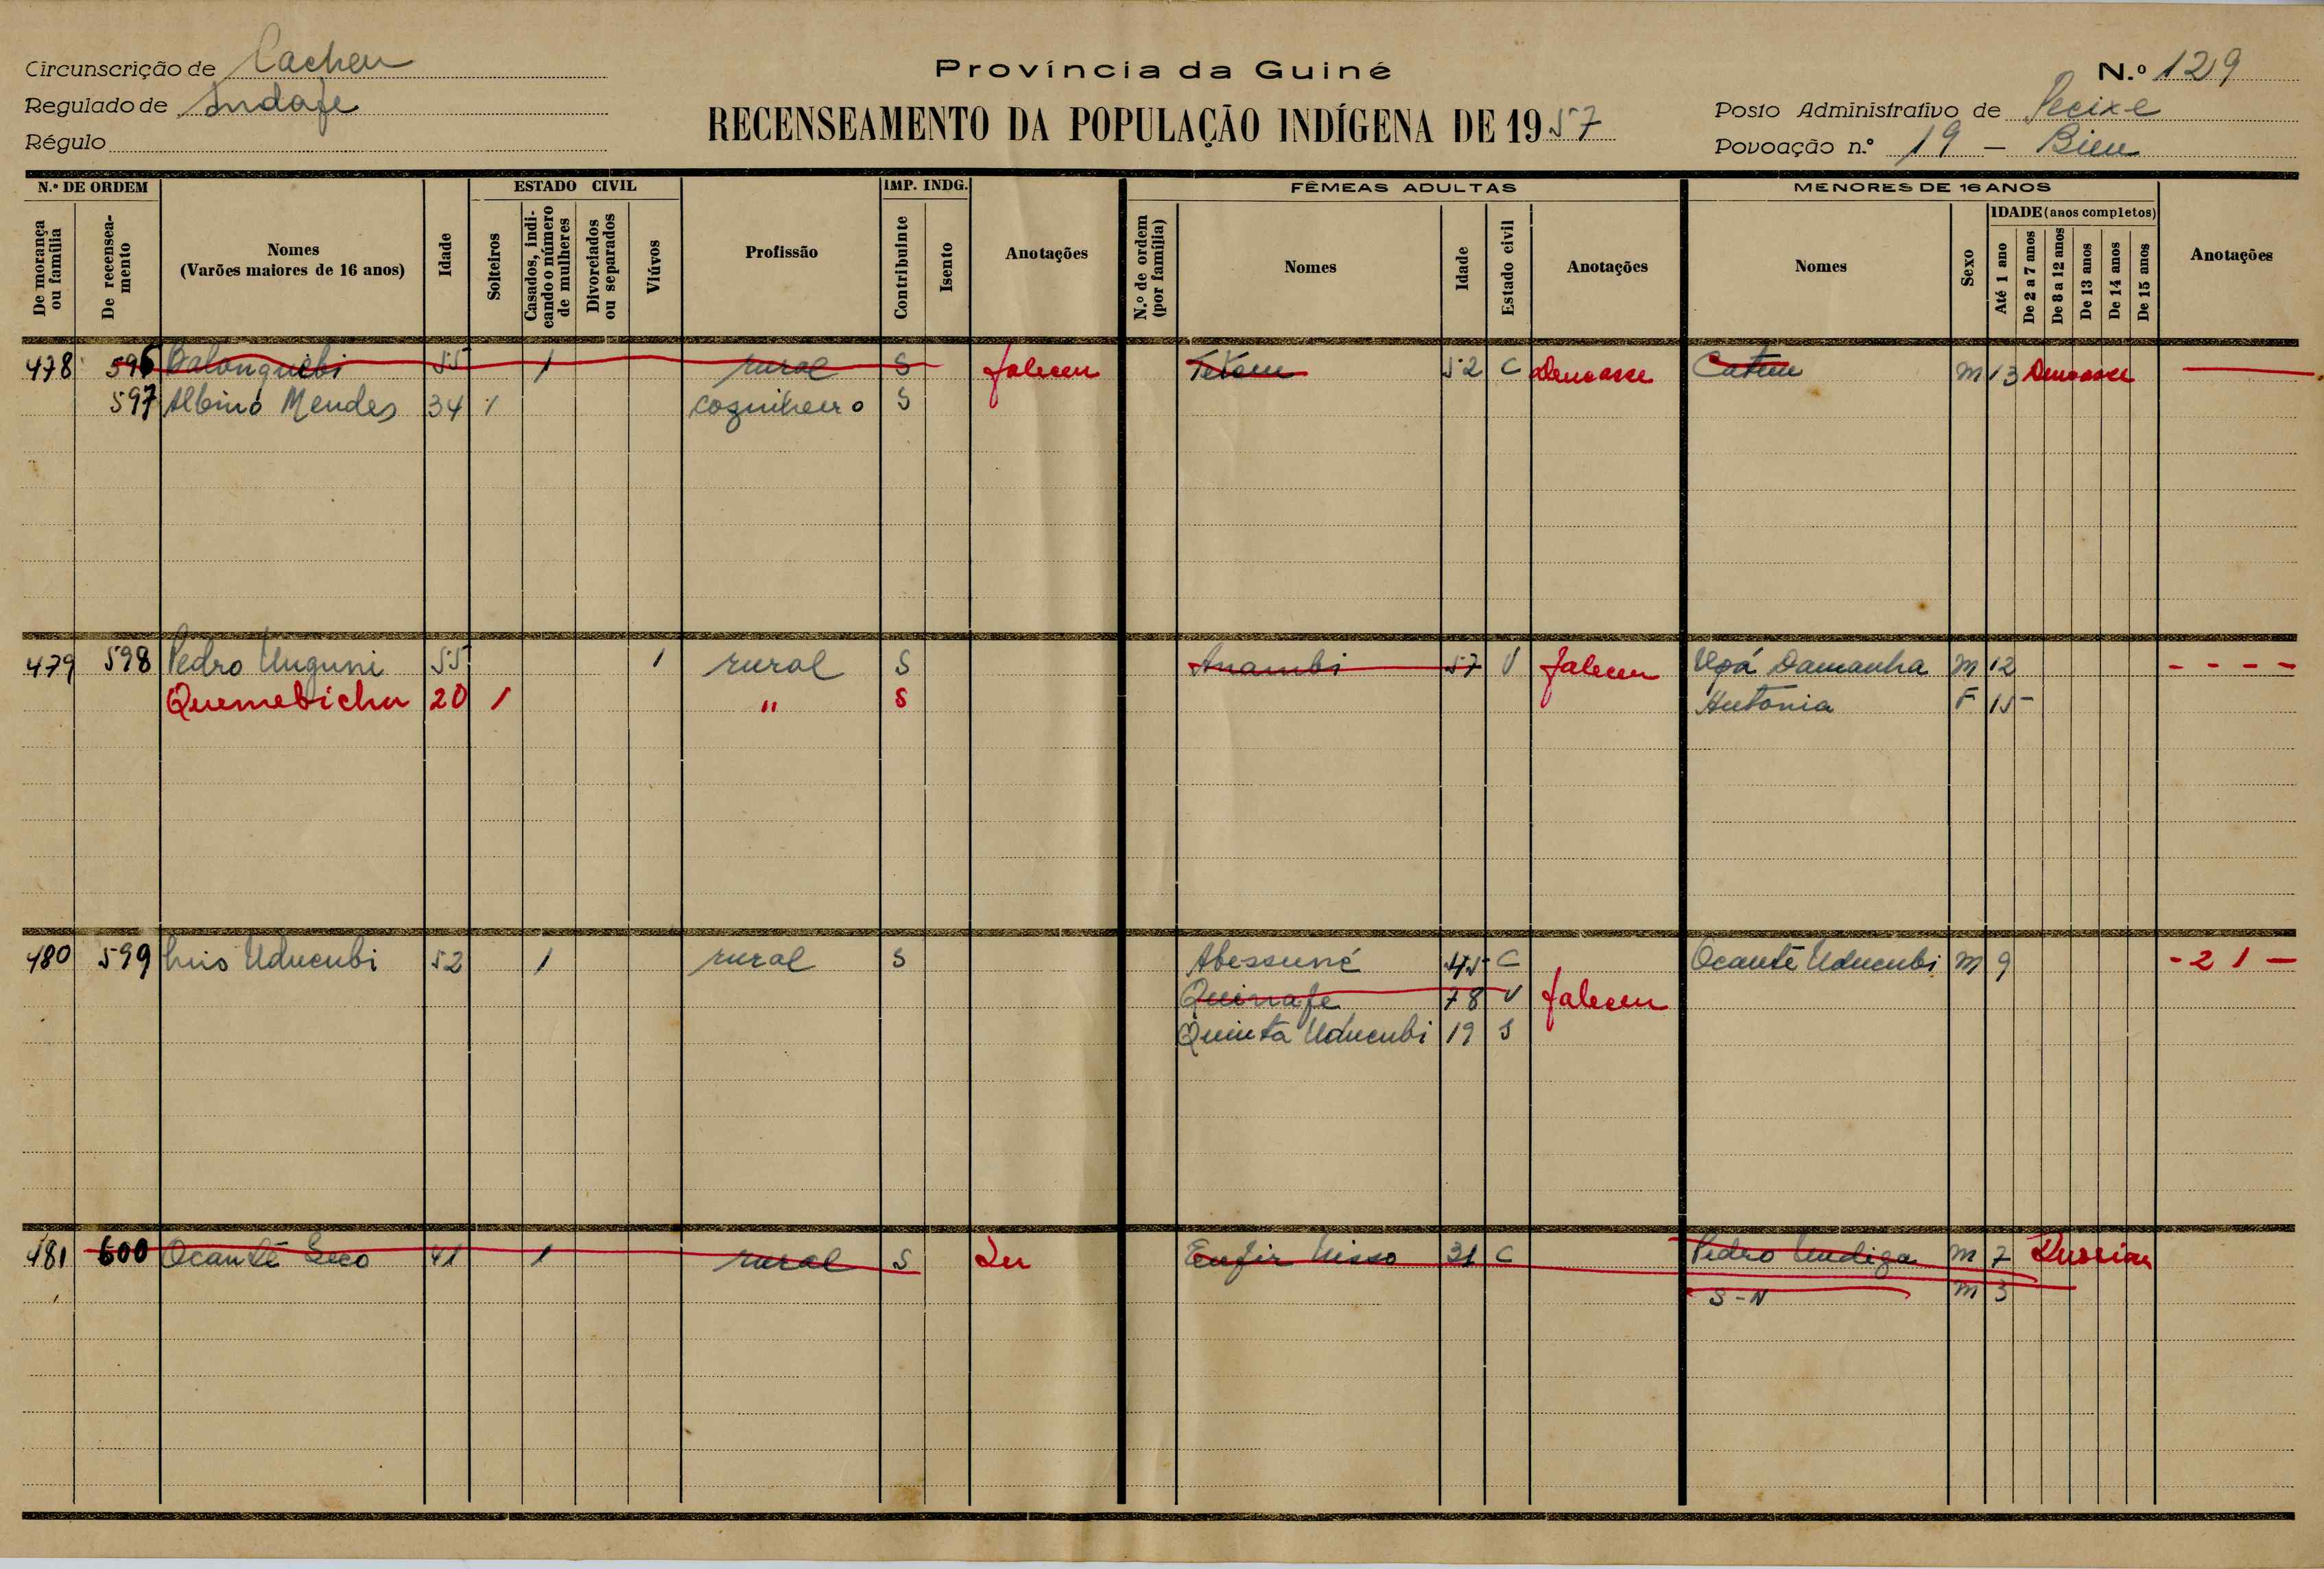 Circunscrição de Cacheu
Regulado de Indafe
Régulo
Província da Guiné
RECENSEAMENTO DA POPULAÇÃO INDÍGENA DE 1957
N.º 129
Posto Administrativo de Pecixe
Povoação n.º 19 - Bieu
N.º DE ORDEM
De morança ou família
De recenseamento
Nomes
(Varões maiores de 16 anos)
Idade
ESTADO CIVIL
Solteiros
Casados, indicando o número de mulheres
Divorciados ou separados
Viúvos
Profissão
IMP. INDG.
Contribuinte
Isento
Anotações
FÊMEAS ADULTAS
N.º de ordem (por família)
Nomes
Idade
Estado civil
Anotações
MENORES DE 16 ANOS
Nomes
Sexo
IDADE (anos completos)
Até 1 ano
De 2 a 7 anos
De 8 a 12 anos
De 13 anos
De 14 anos
De 15 anos
Anotações
478 596 Balonquebi 55 1 rural S faleceu 52 C M 13
597 Albino Mendes 34 1 cozinheiro S
479 598 Pedro Unguni 55 1 rural S Anambi 57 V faleceu Upá Damanha M 12 - - - -
Quemebichu 20 1 " S Antónia F 15
480 599 Luis Uducubi 52 1 rural S Abessuné 45 C Ocanté Uducubi M 9 - 2 1 -
Quinafe 78 V faleceu
Quinta Uducubi 19 S
481 600 Ocanté Seco 41 1 rural S 31 C Pedro M 7
S-N M 3